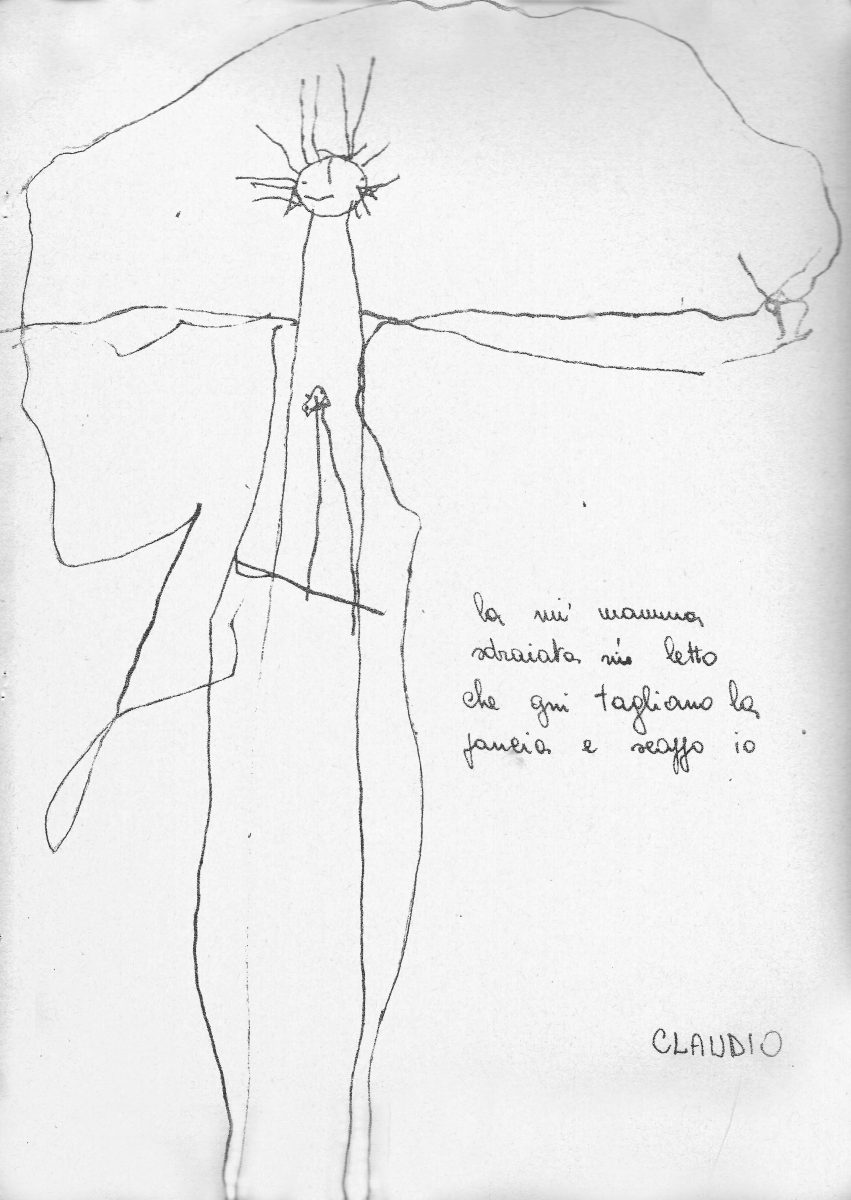 la mi' mamma
sdraiata ni' letto
che gni tagliano la
pancia e scappo io
CLAUDIO